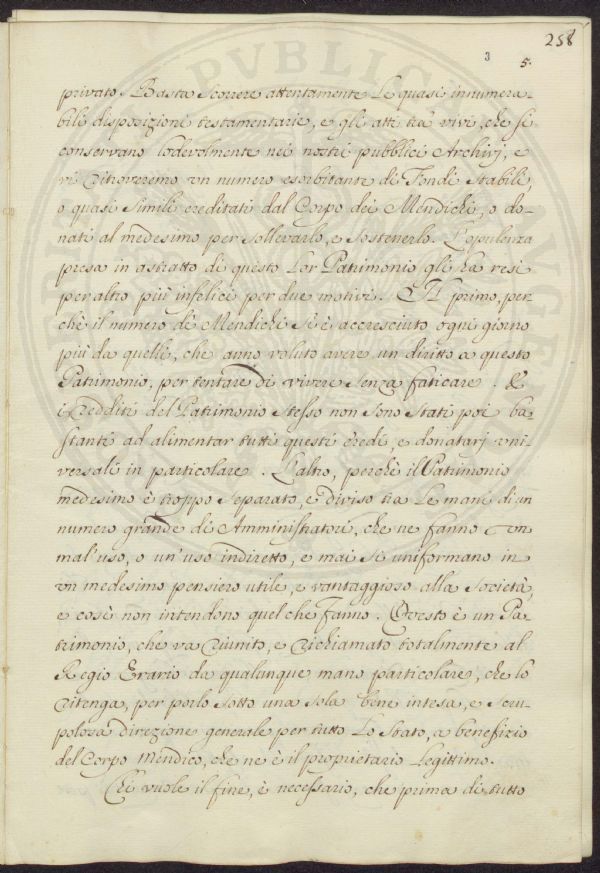 258
3
5.
privato. Basta scorrere attentamente le quasi innumera-
bili disposizioni testamentarie, e gli atti tra' vivi, che si
conservano lodevolmente nei nostri pubblici Archivj, e
vi ritroveremo un numero esorbitante di Fondi Stabili,
o quasi simili ereditati dal Corpo dei Mendichi, o do-
nati al medesimo per sollevarlo, e sostenerlo. L'opulenza
presa in astratto di questo lor Patrimonio gli ha resi
per altro più infelici per due motivi. Il primo, per-
chè il numero di Mendichi si è accresciuto ogni giorno
più da quelli, che anno voluto avere un diritto a questo
Patrimonio, per tentare di vivere senza faticare. E
i redditi del Patrimonio stesso non sono stati poi ba-
stanti ad alimentar tutti questi eredi, e donatarj uni-
versali in particolare. L'altro, perchè il Patrimonio
medesimo è troppo separato, e diviso tra le mani di un
numero grande di Amministratori, che ne fanno un
mal'uso, o un'uso indiretto, e mai si uniformano in
un medesimo pensiero utile, e vantaggioso alla Società,
e così non intendono quel che fanno. Questo è un Pa-
trimonio, che va riunito, e richiamato totalmente al
Regio Erario da qualunque mano particolare, che lo
ritenga, per porlo sotto una sola bene intesa, e scru-
polosa direzione generale per tutto lo Stato, a benefizio
del Corpo Mendico, che ne è il proprietario legittimo.
Chi vuole il fine, è necessario, che prima di tutto